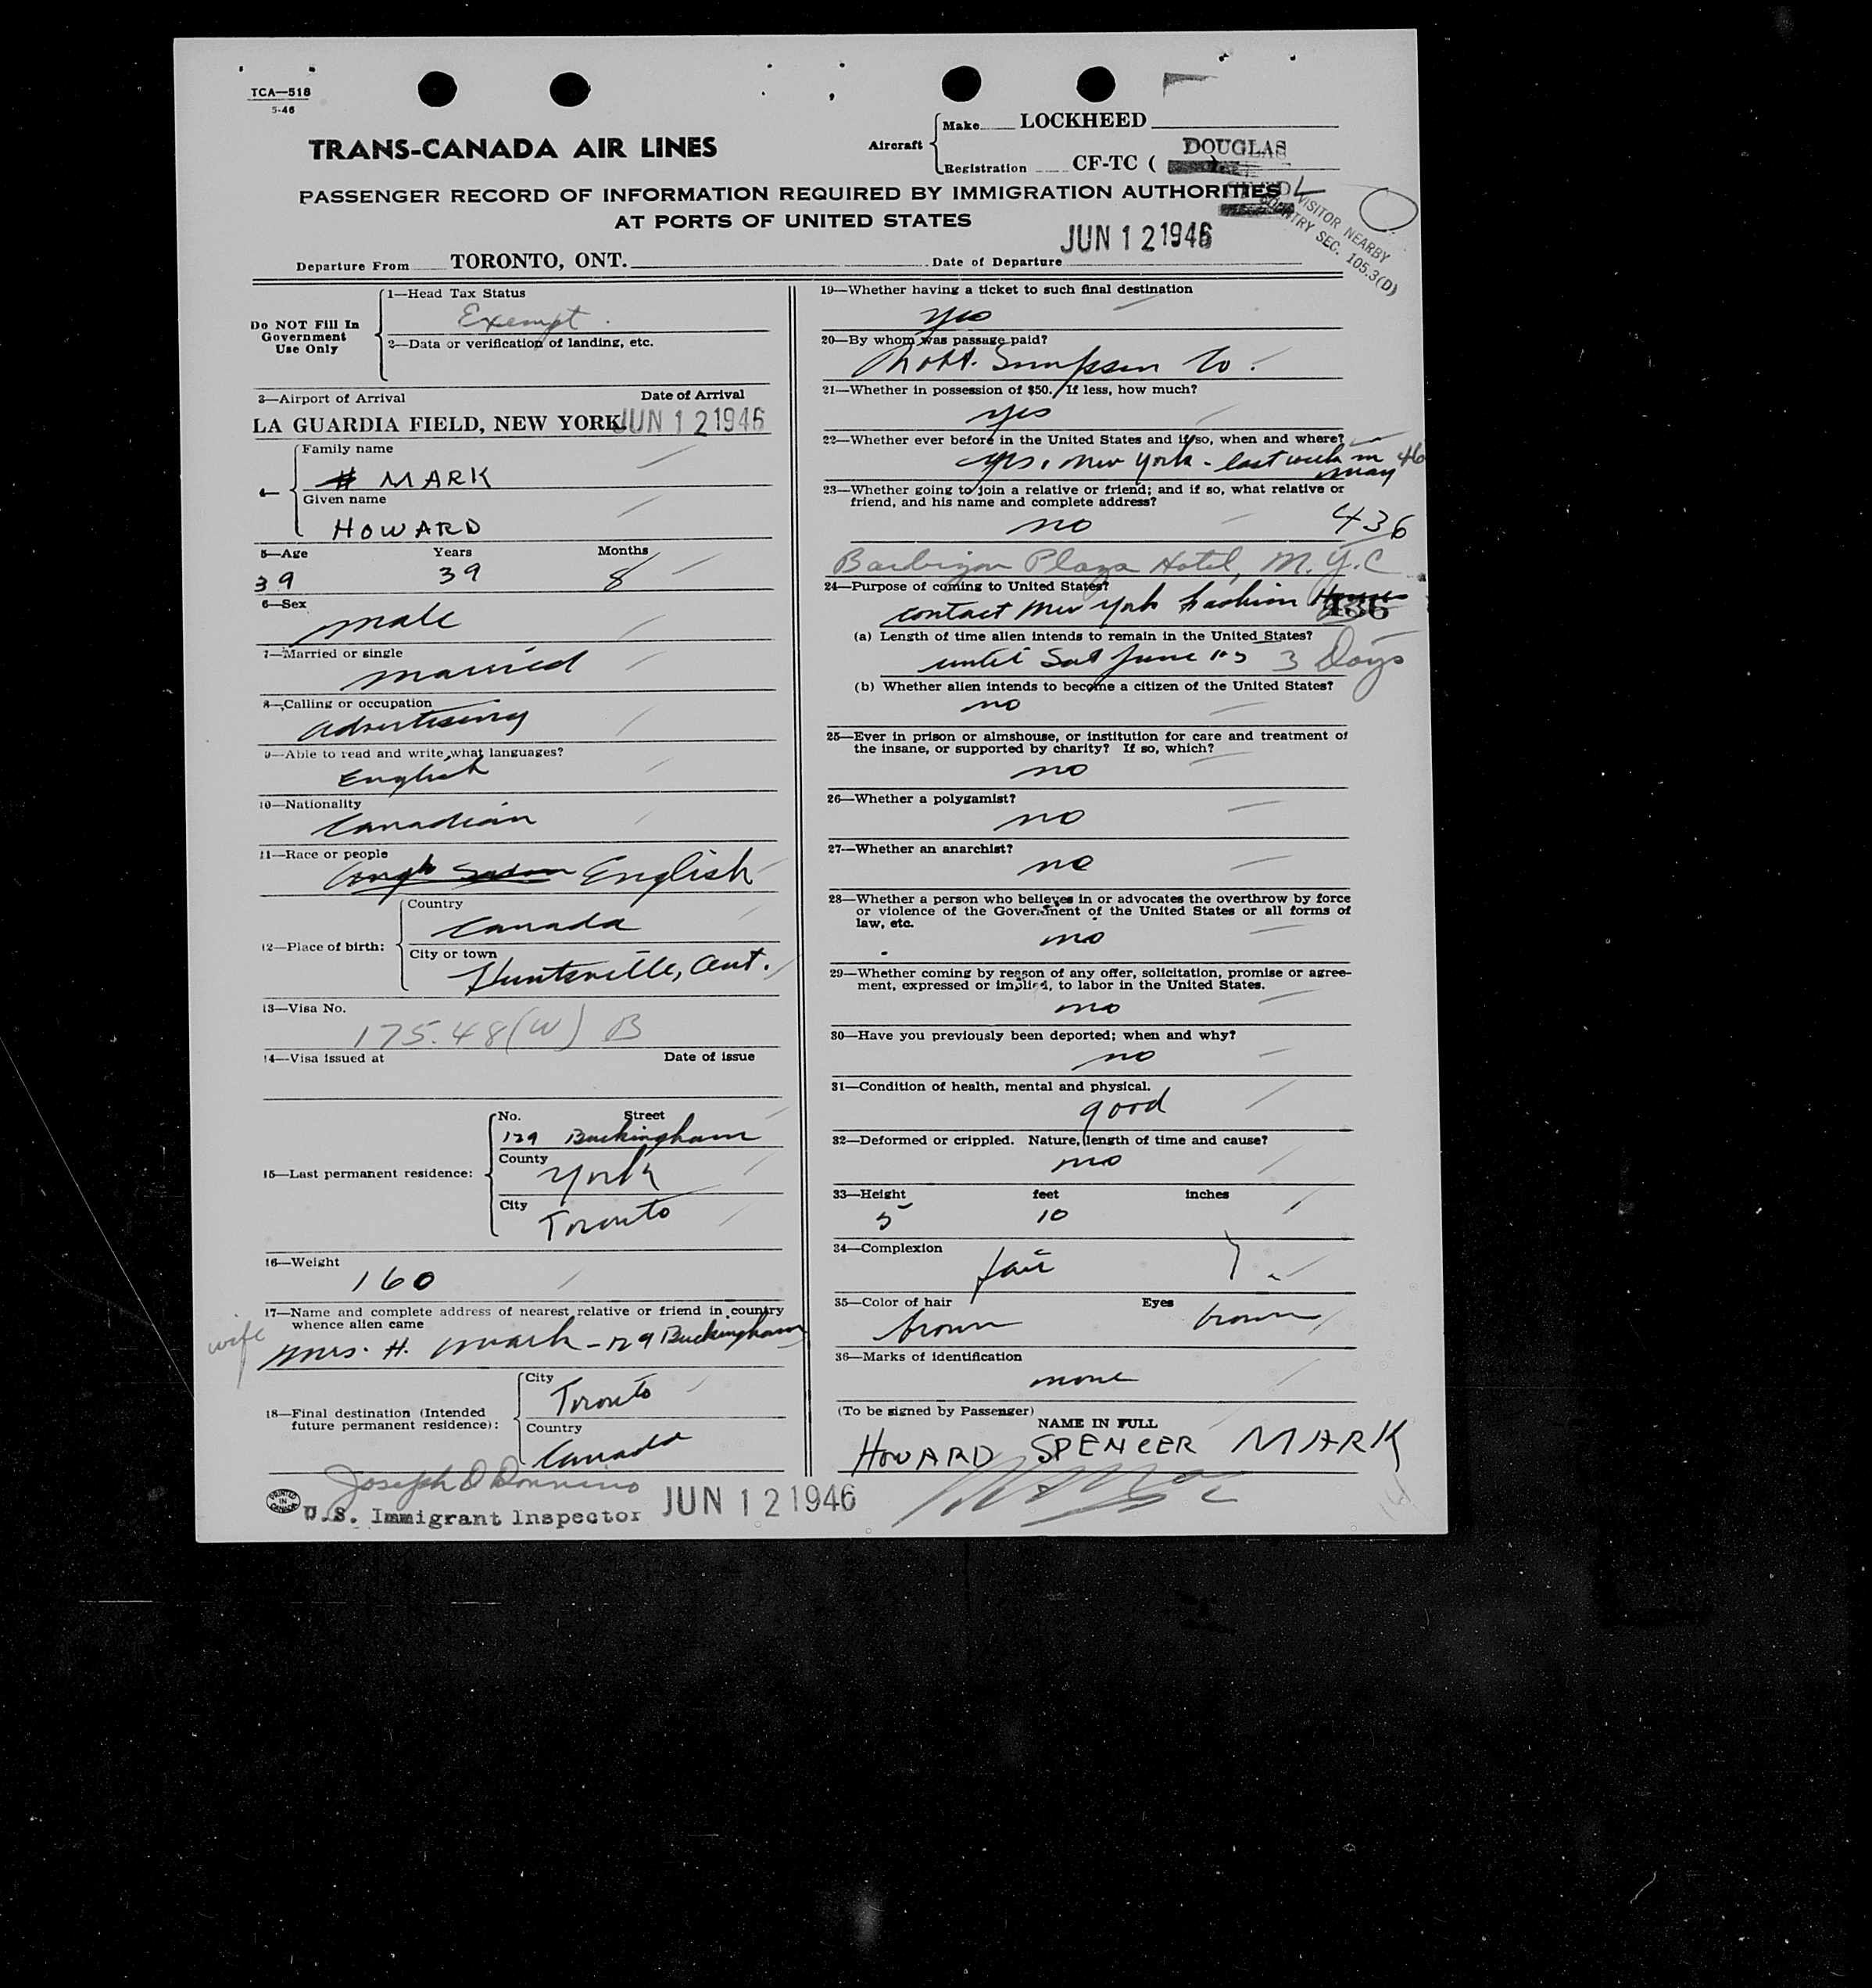 TCA—518
5-46
TRANS-CANADA AIR LINES
Aircraft
Make LOCKHEED
DOUGLAS
Registration CF-TC (
PASSENGER RECORD OF INFORMATION REQUIRED BY IMMIGRATION AUTHORITIES
AT PORTS OF UNITED STATES
VISITOR NEARBY
COUNTRY SEC. 105.3(D)
Departure From TORONTO, ONT. Date of Departure JUN 12 1946
Do NOT Fill In
Government
Use Only
1—Head Tax Status
Exempt
2—Data or verification of landing, etc.
3—Airport of Arrival Date of Arrival
LA GUARDIA FIELD, NEW YORK. JUN 12 1946
4—
Family name
MARK
Given name
HOWARD
5—Age Years Months
39 39 8
6—Sex
male
7—Married or single
married
8—Calling or occupation
advertising
9—Able to read and write what languages?
English
10—Nationality
Canadian
11—Race or people
English
12—Place of birth:
Country
Canada
City or town
Huntsville, Ont.
13—Visa No.
175.48(W) B
14—Visa issued at Date of issue
15—Last permanent residence:
No. Street
129 Buckingham
County
York
City
Toronto
16—Weight
160
17—Name and complete address of nearest relative or friend in country
whence alien came
wife
Mrs. H. Mark - 129 Buckingham
18—Final destination (Intended
future permanent residence):
City
Toronto
Country
Canada
Joseph D Donnino
PRINTED IN CANADA
U.S. Immigrant Inspector JUN 12 1946
19—Whether having a ticket to such final destination
yes
20—By whom was passage paid?
Robt. Simpson Co.
21—Whether in possession of $50. If less, how much?
yes
22—Whether ever before in the United States and if so, when and where?
yes, New York - last week in May 46
23—Whether going to join a relative or friend; and if so, what relative or
friend, and his name and complete address?
no 436
Barbizon Plaza Hotel, N.Y.C
24—Purpose of coming to United States?
contact New York fashion Houses
436
(a) Length of time alien intends to remain in the United States?
until Sat June 15 3 Days
(b) Whether alien intends to become a citizen of the United States?
no
25—Ever in prison or almshouse, or institution for care and treatment of
the insane, or supported by charity? If so, which?
no
26—Whether a polygamist?
no
27—Whether an anarchist?
no
28—Whether a person who believes in or advocates the overthrow by force
or violence of the Government of the United States or all forms of
law, etc.
no
29—Whether coming by reason of any offer, solicitation, promise or agree-
ment, expressed or implied, to labor in the United States.
no
30—Have you previously been deported; when and why?
no
31—Condition of health, mental and physical.
good
32—Deformed or crippled. Nature, length of time and cause?
no
33—Height feet inches
5 10
34—Complexion
fair
35—Color of hair Eyes
brown brown
36—Marks of identification
none
(To be signed by Passenger)
NAME IN FULL
HOWARD SPENCER MARK